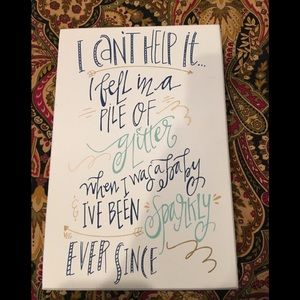 I CAN'T HELP IT...
I fell in a
PILE OF
glitter
when I was a baby
I'VE BEEN sparkly
EVER SINCE